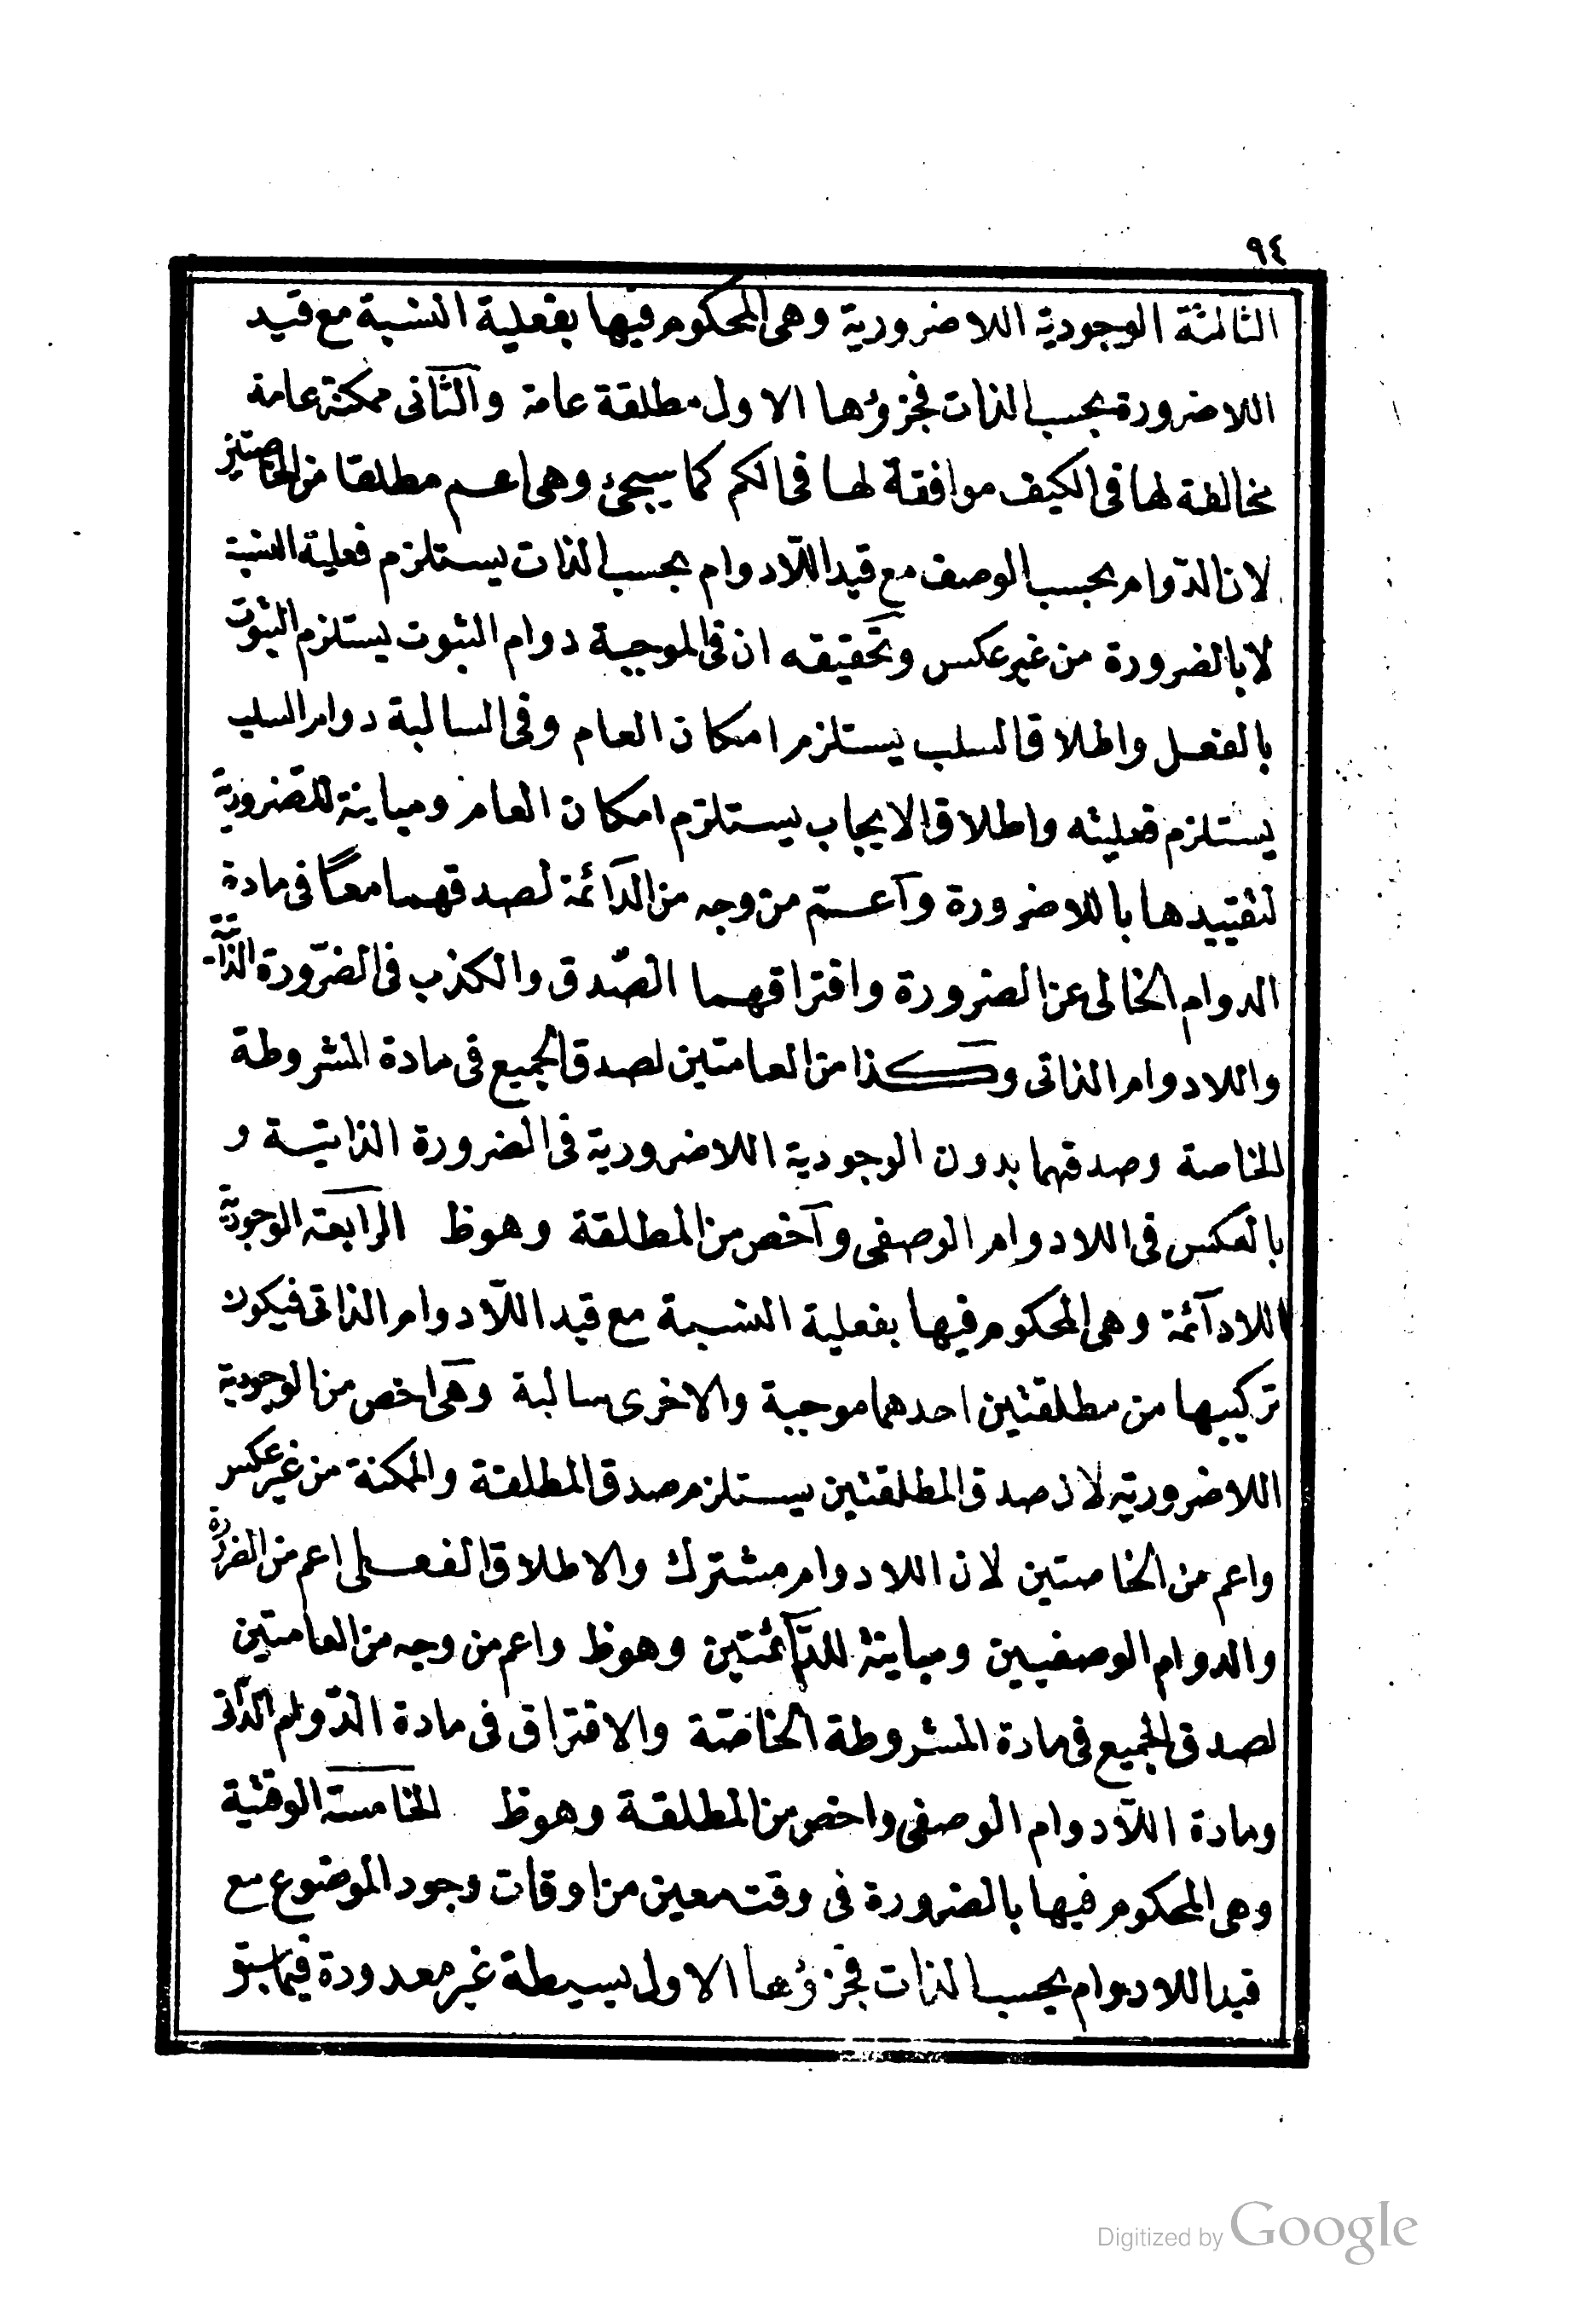 ٩٤
الثالثة الوجودية اللاضرورية وهى المحكوم فيها بفعلية النسبة مع قيد
اللاضرورة بحسب الذات فجزؤها الاول مطلقة عامة والثانى ممكنة عامة
مخالفة لها فى الكيف موافقة لها فى الكم كما سيجئ وهى اعم مطلقا من الخاصتين
لان الدّوام بحسب الوصف مع قيد اللّادوام بحسب الذات يستلزم فعلية النسبة
لا بالضرورة من غير عكس وتحقيقه ان فى الموجبة دوام الثبوت يستلزم الثبوت
بالفعل واطلاق السلب يستلزم امكان العام وفى السالبة دوام السلب
يستلزم فعليته واطلاق الايجاب يستلزم امكان العام ومباينة للضرورية
لتقييدها باللاضرورة وآعمّ من وجه من الدآئمة لصدقهما معًا فى مادة
الدوام الخالى عن الضرورة وافتراقهما الصّدق والكذب فى الضرّورة الذّاتية
واللادوام الذاتى وكذا من العامتين لصدق الجميع فى مادة المشروطة
الخاصة وصدقهما بدون الوجودية اللاضرورية فى الضرورة الذاتية و
بالعكس فى اللادوام الوصفى وآخص من المطلقة وهوظ الرابعة الوجوديّة
اللادآئمة وهى المحكوم فيها بفعلية النسبة مع قيد اللّادوام الذاتى فيكون
تركيبها من مطلقتين احدهما موجبة والاخرى سالبة وهى اخص من الوجودية
اللاضرورية لان صدق المطلقتين يستلزم صدق المطلقة والممكنة من غير عكس
واعم من الخاصتين لان اللادوام مشترك والاطلاق الفعلى اعم من الضرورة
والدوام الوصفيين ومباينة للدّآئمتين وهوظ واعم من وجه من العامتين
لصدق الجميع فى مادة المشروطة الخاصّة والافتراق فى مادة الدّوام الذّاتى
ومادة اللّادوام الوصفى واخص من المطلقة وهوظ الخامسة الوقتية
وهى المحكوم فيها بالضرورة فى وقت معين من اوقات وجود الموضوع مع
قيد اللادوام بحسب الذات فجزؤها الاول بسيطة غير معدودة فيما سبق
Digitized by Google